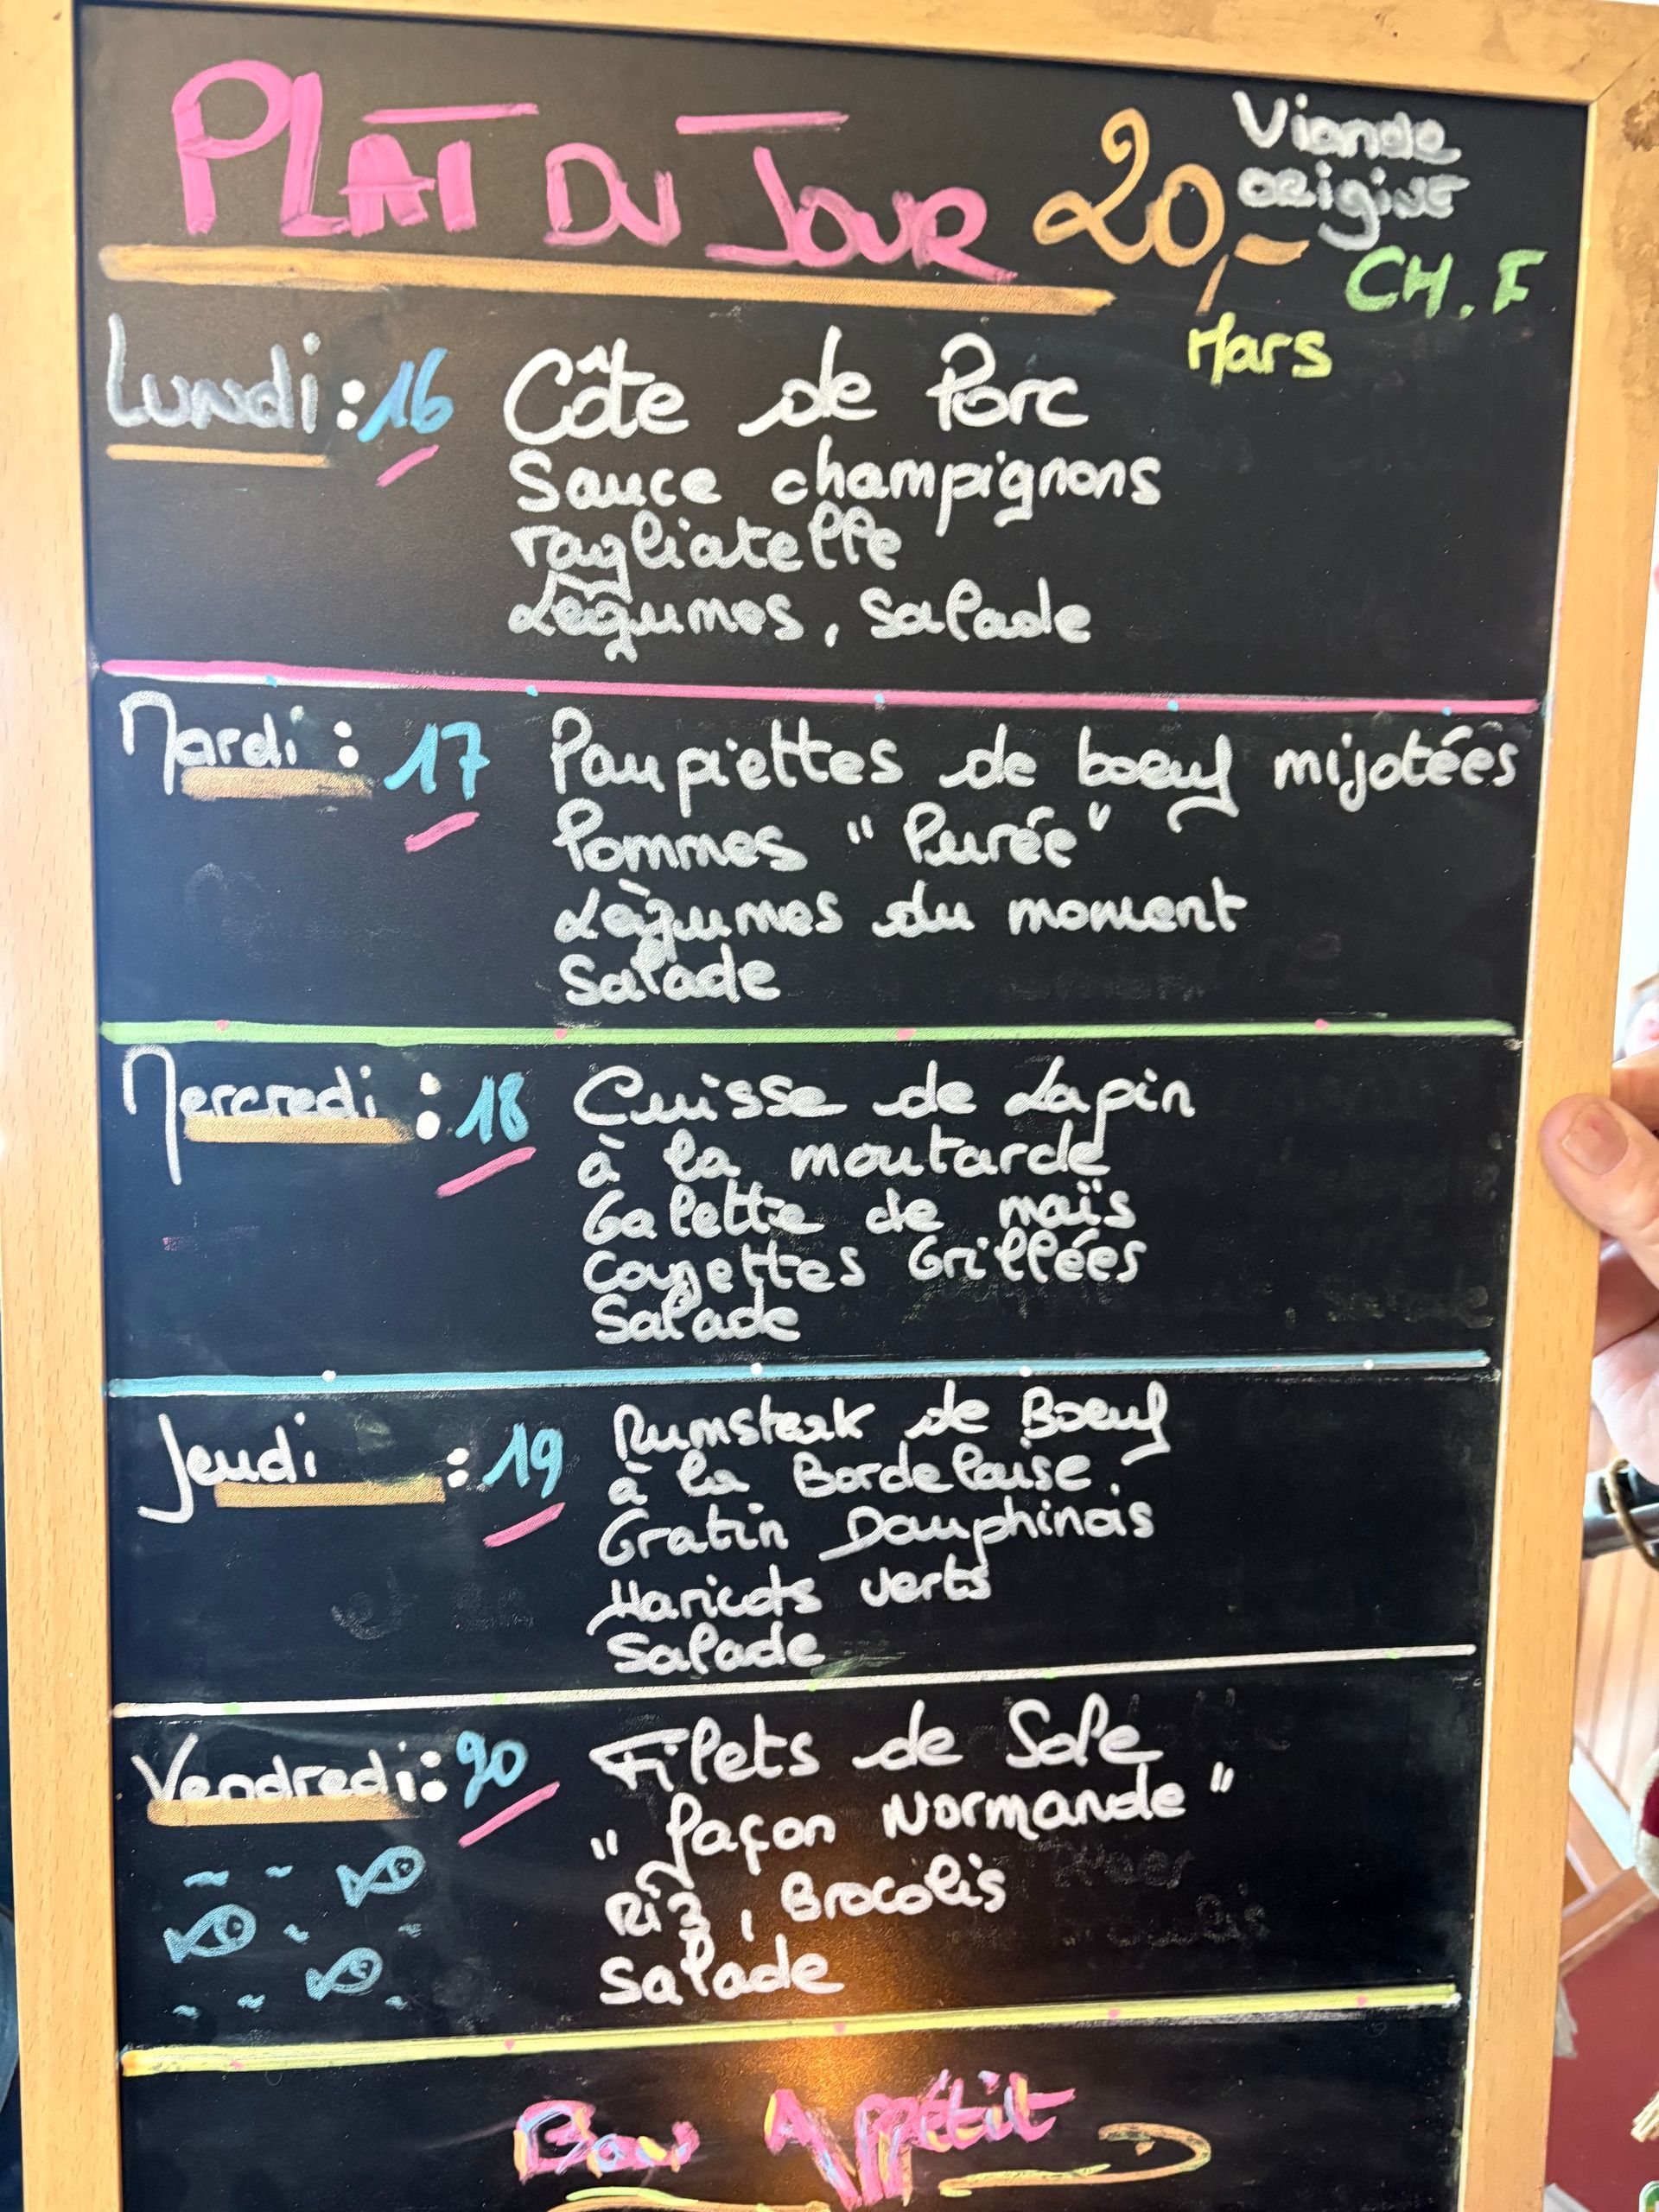 PLAT DU JOUR 20,-
Viande
origine
CH. F
Mars
Lundi : 16 Côte de Porc
Sauce champignons
Tagliatelle
Légumes, Salade
Mardi : 17 Paupiettes de boeuf mijotées
Pommes "Purée"
Légumes du moment
Salade
Mercredi : 18 Cuisse de Lapin
à la moutarde
Galette de maïs
Courgettes Grillées
Salade
Jeudi : 19 Rumsteak de Boeuf
à la Bordelaise
Gratin Dauphinois
Haricots verts
Salade
Vendredi : 20 Filets de Sole
"façon Normande"
Riz, Brocolis
Salade
Bon Appétit